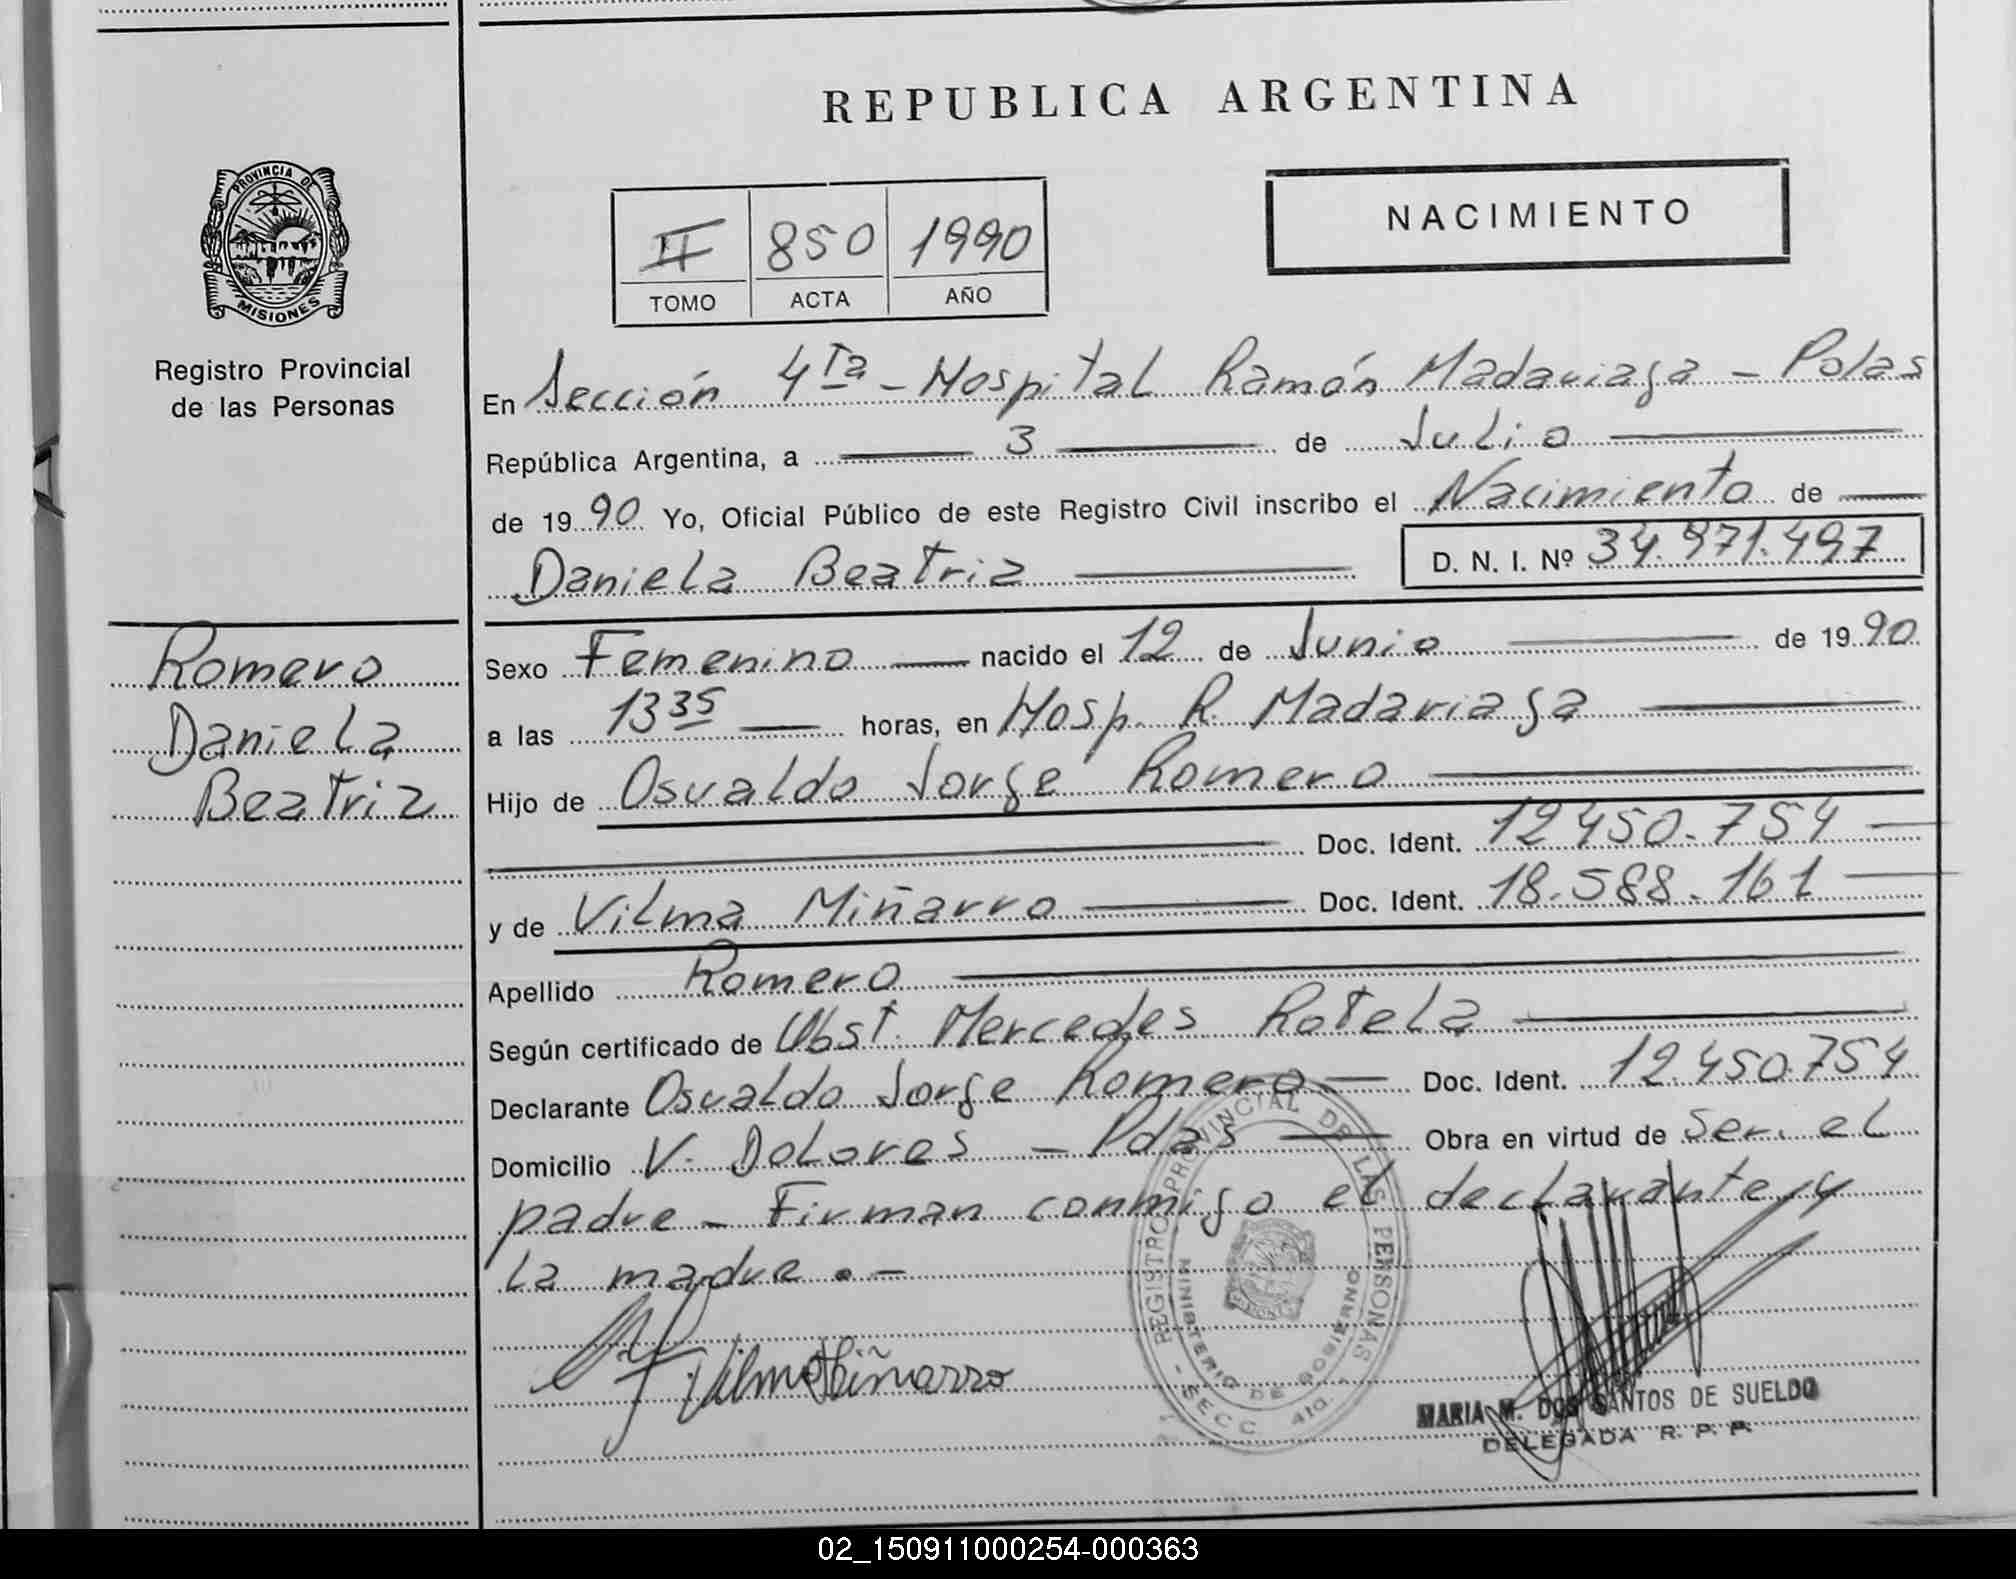 REPUBLICA ARGENTINA
PROVINCIA DE
MISIONES
Registro Provincial
de las Personas
II 850 1990
TOMO ACTA AÑO
NACIMIENTO
En Sección 4Ta - Hospital Ramón Madariaga - Pdas
República Argentina, a 3 de Julio
de 1990 Yo, Oficial Público de este Registro Civil inscribo el Nacimiento de
Daniela Beatriz D. N. I. Nº 34.971.497
Romero
Daniela
Beatriz
Sexo Femenino nacido el 12 de Junio de 1990
a las 13 35 horas, en Hosp. R. Madariaga
Hijo de Osvaldo Jorge Romero
Doc. Ident. 12450.754
y de Vilma Miñarro Doc. Ident. 18.588.161
Apellido Romero
Según certificado de Obst. Mercedes Rotela
Declarante Osvaldo Jorge Romero Doc. Ident. 12.450.754
Domicilio V. Dolores - Pdas Obra en virtud de ser el
padre - Firman conmigo el declarante y
la madre . -
Vilma Miñarro
REGISTRO PROVINCIAL DE LAS PERSONAS
MINISTERIO DE GOBIERNO
- SECC. 4ta.
MARIA M. DOS SANTOS DE SUELDO
DELEGADA R. P. P.
02_150911000254-000363